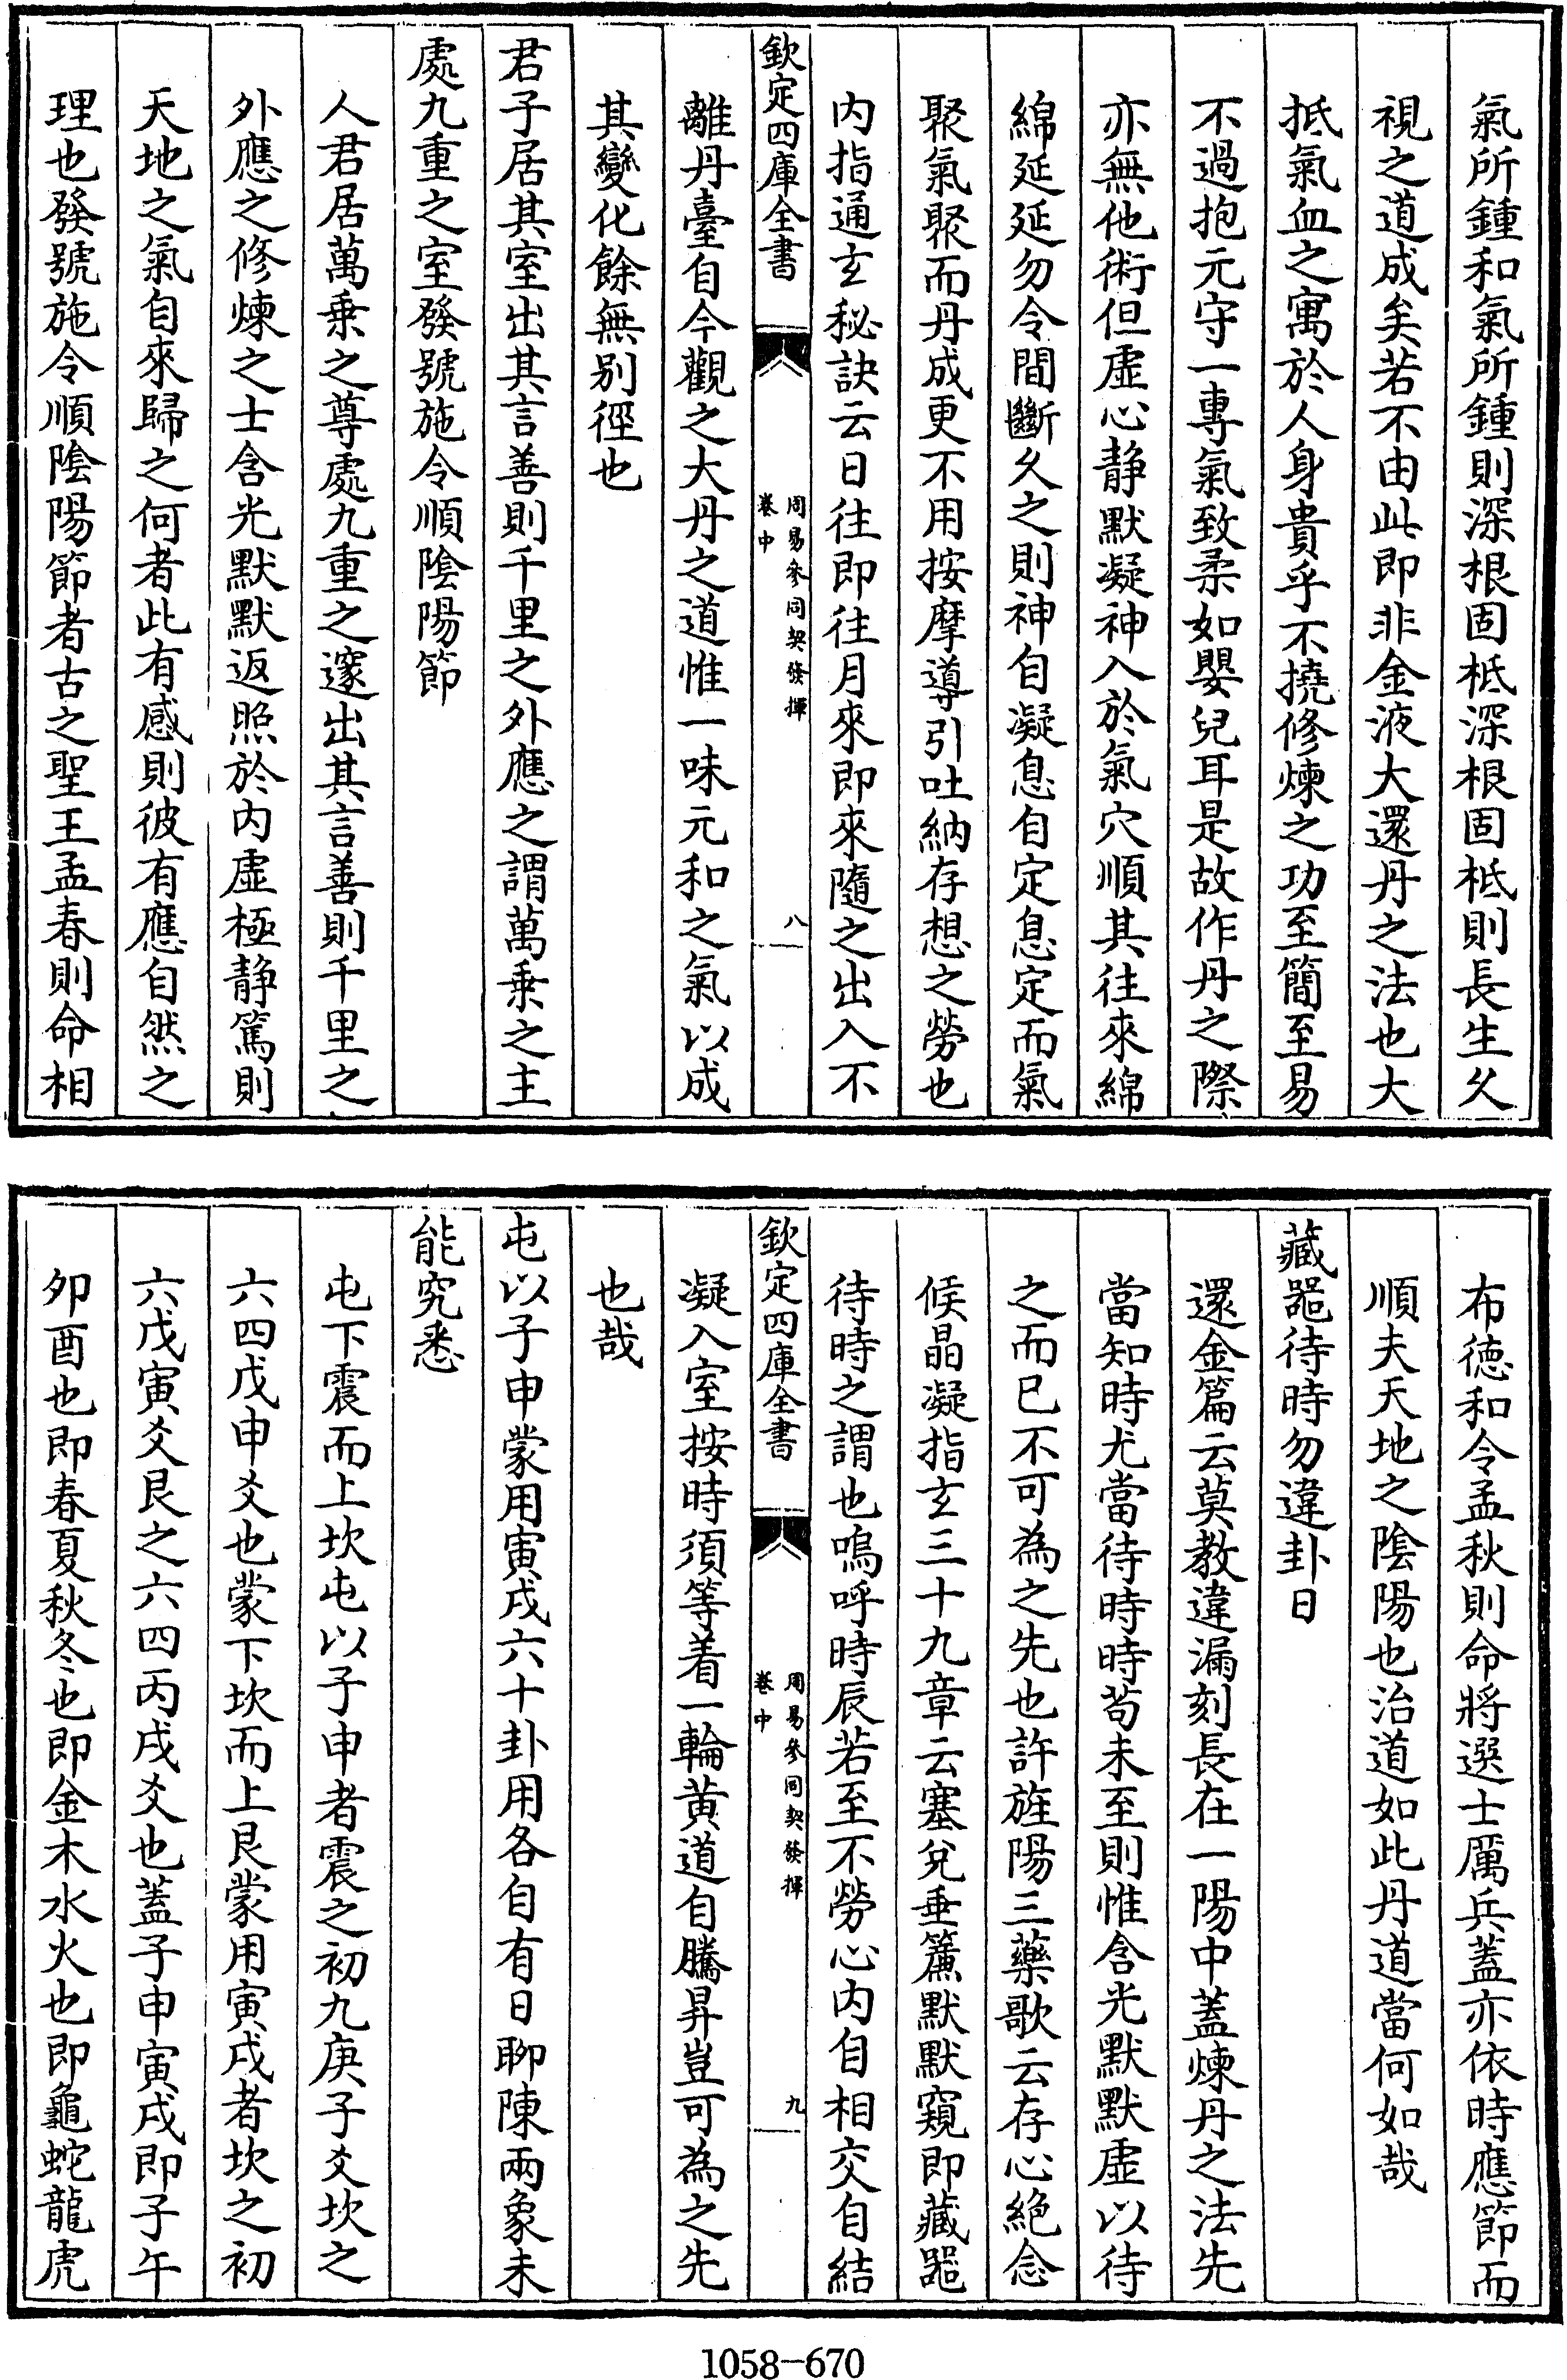 氣所鍾和氣所鍾則深根固柢深根固柢則長生久
視之道成矣若不由此即非金液大還丹之法也大
抵氣血之寓於人身貴乎不撓修煉之功至簡至易
不過抱元守一專氣致柔如嬰兒耳是故作丹之際
亦無他術但虛心静默凝神入於氣穴順其往來綿
綿延延勿令間斷久之則神自凝息自定息定而氣
聚氣聚而丹成更不用按摩導引吐納存想之勞也
内指通玄秘訣云日往即往月來即來隨之出入不
欽定四庫全書
周易參同契發揮
卷中
八
離丹臺自今觀之大丹之道惟一味元和之氣以成
其變化餘無别徑也
君子居其室出其言善則千里之外應之謂萬乗之主
處九重之室發號施令順陰陽節
人君居萬乗之尊處九重之邃出其言善則千里之
外應之修煉之士含光默默返照於内虛極静篤則
天地之氣自來歸之何者此有感則彼有應自然之
理也發號施令順陰陽節者古之聖王孟春則命相
布徳和令孟秋則命將選士厲兵蓋亦依時應節而
順夫天地之陰陽也治道如此丹道當何如哉
藏器待時勿違卦日
還金篇云莫教違漏刻長在一陽中蓋煉丹之法先
當知時尤當待時時苟未至則惟含光默默虛以待
之而已不可為之先也許旌陽三藥歌云存心絶念
候晶凝指玄三十九章云塞兌垂簾默默窺即藏器
待時之謂也嗚呼時辰若至不勞心内自相交自結
欽定四庫全書
周易參同契發揮
卷中
九
凝入室按時須等着一輪黄道自騰昇豈可為之先
也哉
屯以子申蒙用寅戌六十卦用各自有日聊陳兩象未
能究悉
屯下震而上坎屯以子申者震之初九庚子爻坎之
六四戊申爻也蒙下坎而上艮蒙用寅戌者坎之初
六戊寅爻艮之六四丙戌爻也蓋子申寅戌即子午
夘酉也即春夏秋冬也即金木水火也即龜蛇龍虎
1058-670